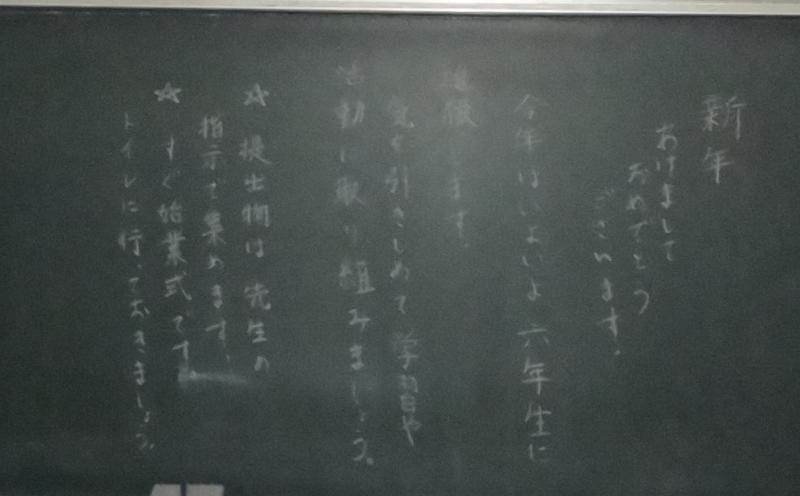 新年
あけまして
おめでとう
ございます。
今年はいよいよ六年生に
進級します。
気を引きしめて学習や
活動に取り組みましょう。
☆提出物は先生の
指示で集めます。
☆すぐ始業式です。
トイレに行っておきましょう。